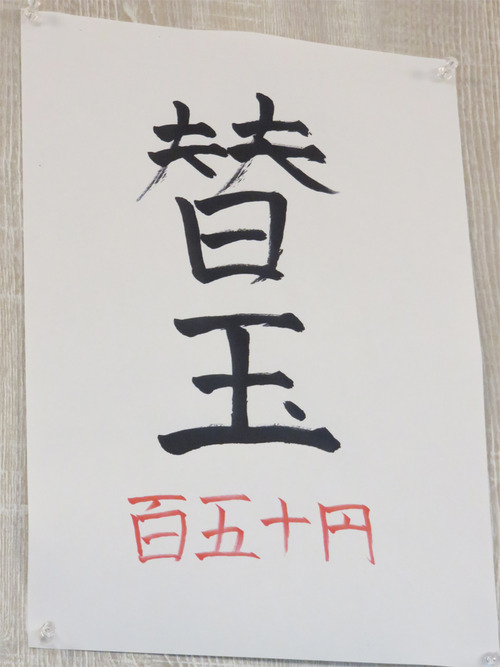 替玉
百五十円